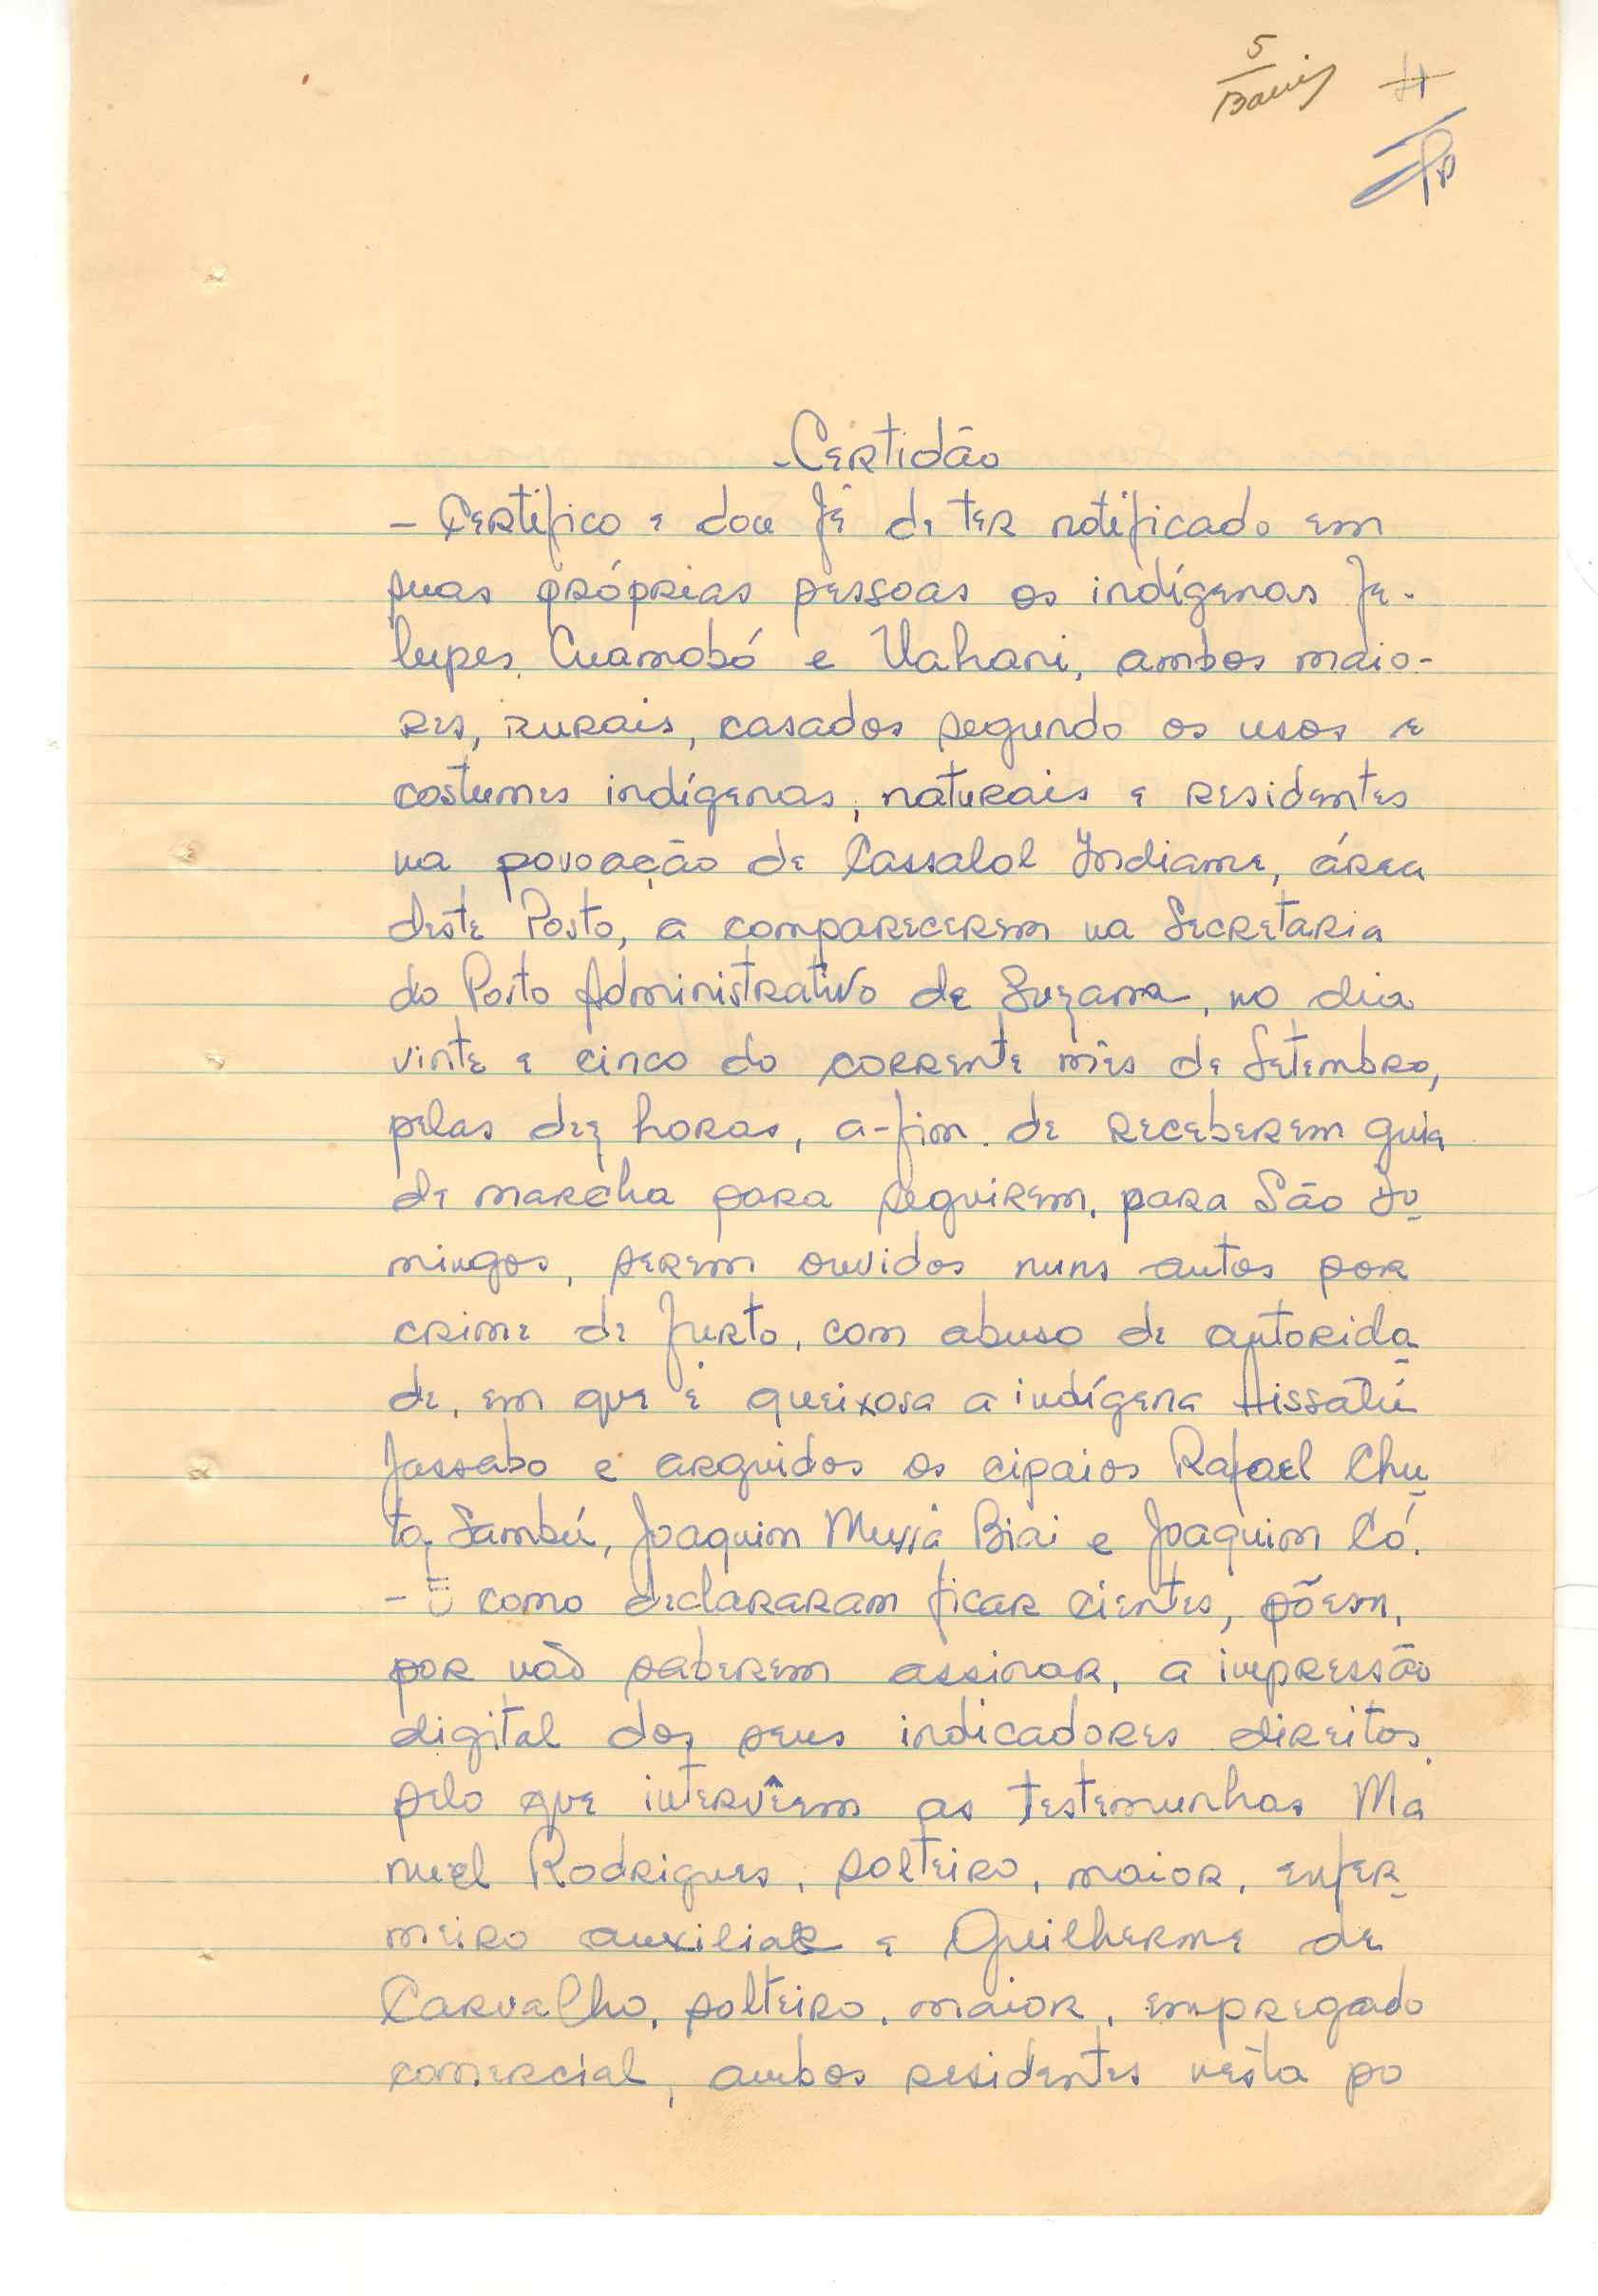 5
-Certidão
- Certifico e dou fé de ter notificado em
suas próprias pessoas os indígenas Fe-
lupes, Cuamobó e Uahani, ambos maio-
res, rurais, casados segundo os usos e
costumes indígenas, naturais e residentes
na povoação de Cassalol Indiame, área
deste Posto, a comparecerem na Secretaria
do Posto Administrativo de Suzana, no dia
vinte e cinco do corrente mês de Setembro,
pelas dez horas, a-fim de receberem guia
de marcha para seguirem, para São Do
mingos, serem ouvidos nuns autos por
crime de furto, com abuso de autorida
de, em que é queixosa a indígena Aissatú
Jassabo e arguidos os cipaios Rafael Chu
to Sambú, Joaquim Mussá Biai e Joaquim Có.
- E como declararam ficar cientes, põem,
por não saberem assinar, a impressão
digital dos seus indicadores direitos
pelo que intervêem as testemunhas Ma
nuel Rodrigues, solteiro, maior, enfer
meiro auxiliar e Guilherme de
Carvalho, solteiro, maior, empregado
comercial, ambos residentes nesta po